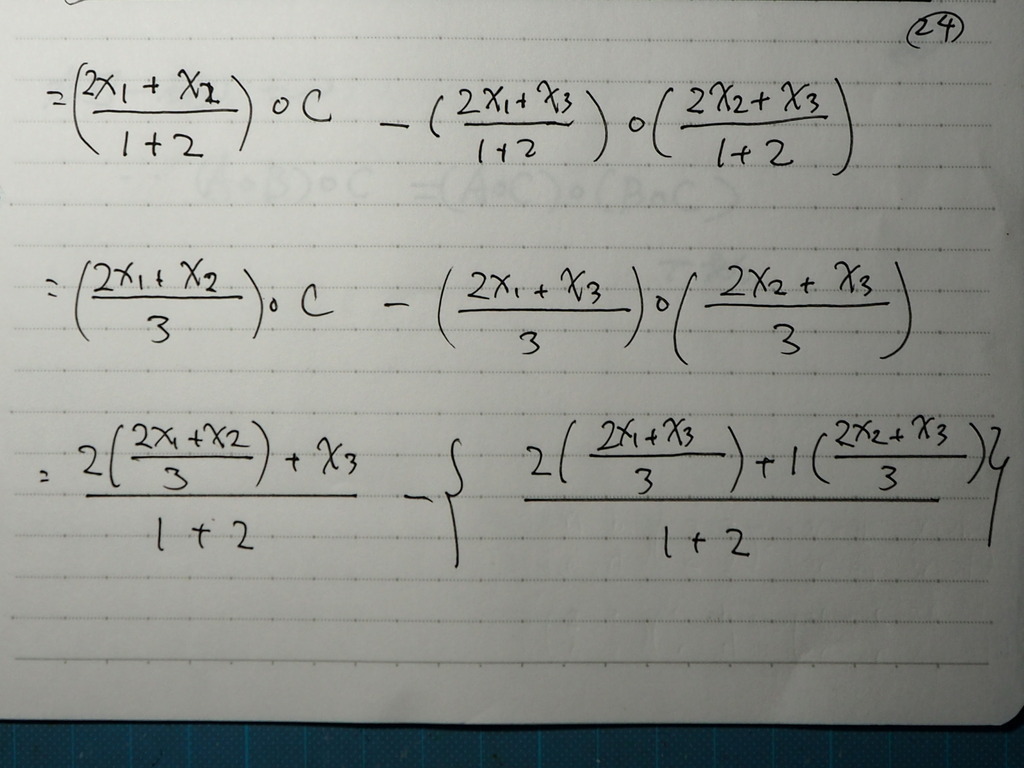 (24)
= ((2x₁ + x₂)/(1+2)) ∘ C − ((2x₁+x₃)/(1+2)) ∘ ((2x₂+x₃)/(1+2))
(A∘B)∘C = (A∘C)∘(B∘C)
= ((2x₁+x₂)/3) ∘ C − ((2x₁+x₃)/3) ∘ ((2x₂+x₃)/3)
= (2((2x₁+x₂)/3) + x₃)/(1+2) − {(2((2x₁+x₃)/3) + 1((2x₂+x₃)/3))/(1+2)}